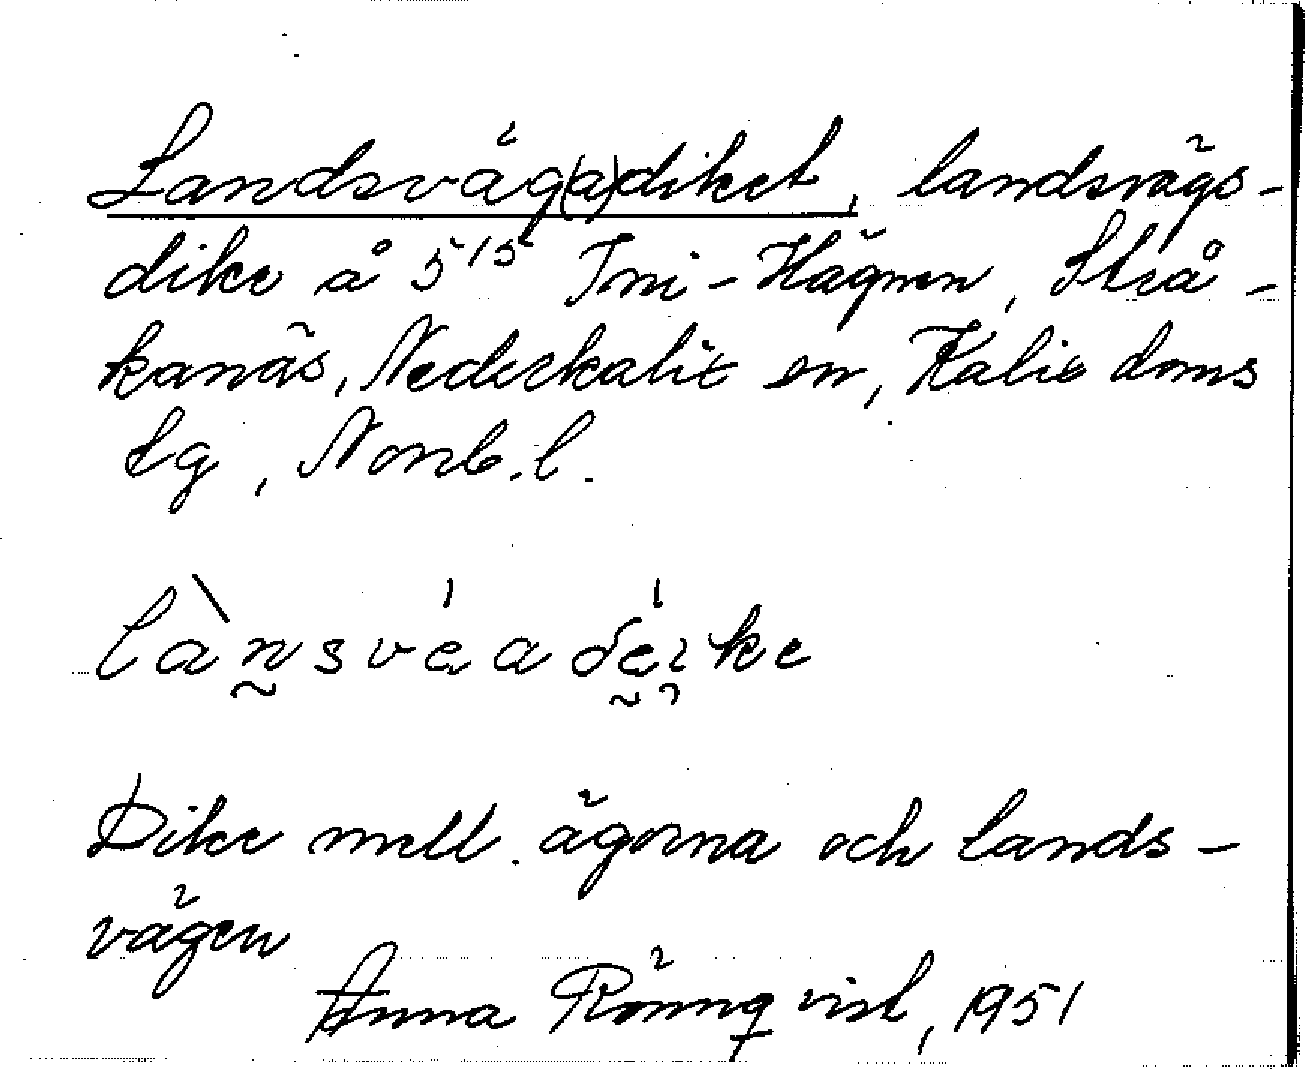 Landsväg(a)diket, landsvägs-
dike å 5¹⁵ Ini-Hägnen, Strå-
kanäs, Nederkalix sn, Kalix doms
tg, Norrb. l.
lànsvéadéike
Dike mell. ägorna och lands-
vägen
Anna Rönnqvist, 1951